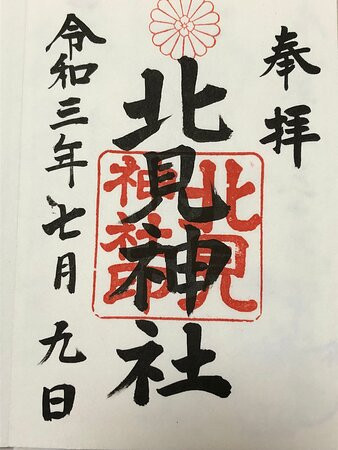 奉拝
北見神社
北見
神社印
令和三年七月九日